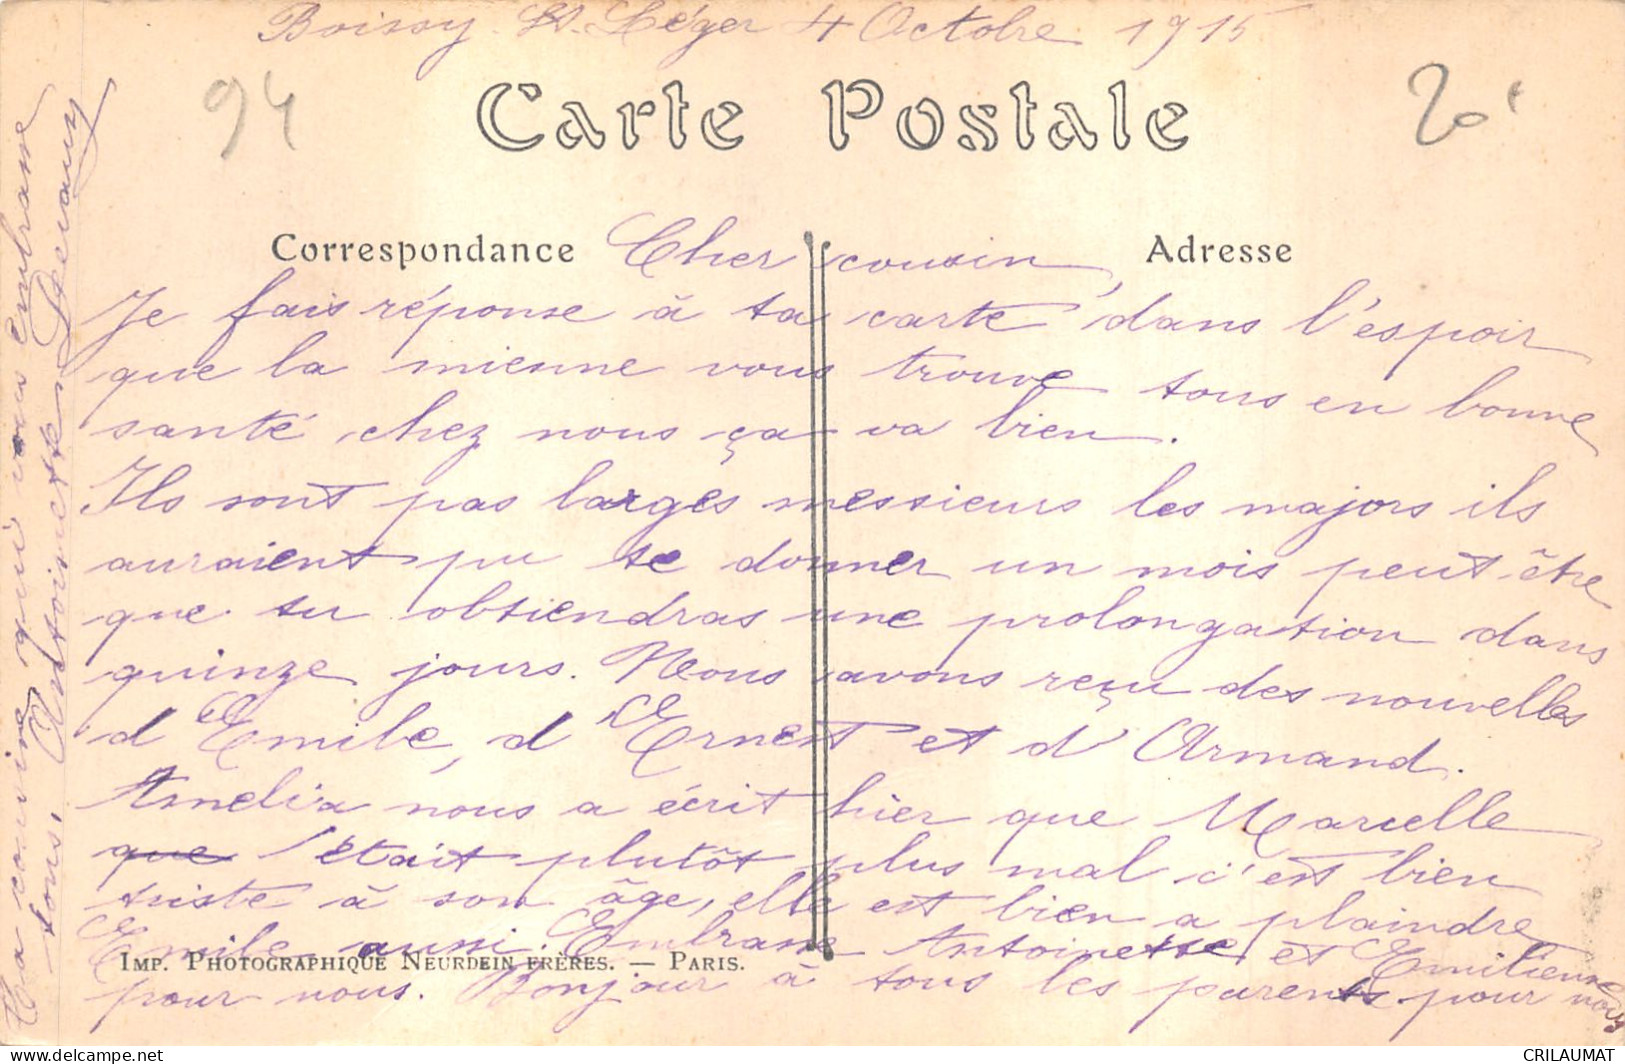 Boissy St. Léger 4 Octobre 1915
94
20
Carte Postale
Correspondance
Adresse
Cher cousin,
Je fais réponse à ta carte dans l'espoir
que la mienne vous trouve tous en bonne
santé, chez nous ça va bien.
Ils sont pas larges messieurs les majors ils
auraient pu te donner un mois peut-être
que tu obtiendras une prolongation dans
quinze jours. Nous avons reçu des nouvelles
d'Emile, d'Ernest et d'Armand.
Amelia nous a écrit hier que Marcelle
que était plutôt plus mal c'est bien
triste à son âge, elle est bien a plaindre
Emile aussi. Embrasse Antoinette et Emilienne
pour nous. Bonjour à tous les parents pour nous
IMP. PHOTOGRAPHIQUE NEURDEIN FRÈRES. — PARIS.
Ta cousine qui vous embrasse
tous. Antoinette
CRILAUMAT